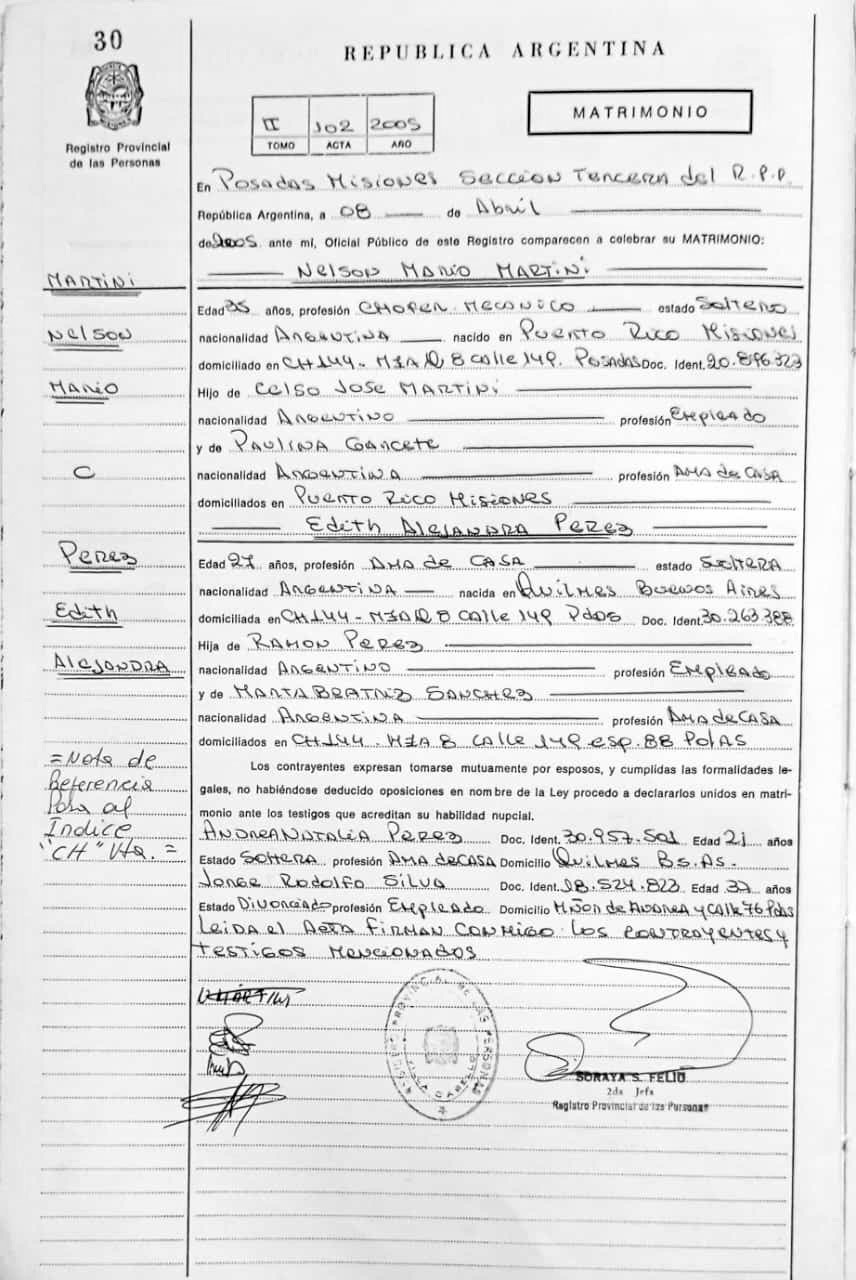 30
REPUBLICA ARGENTINA
Registro Provincial
de las Personas
II 102 2005
TOMO ACTA AÑO
MATRIMONIO
En Posadas Misiones Seccion Tercera del R.P.P.
República Argentina, a 08 de Abril
de 2005 ante mi, Oficial Público de este Registro comparecen a celebrar su MATRIMONIO:
Nelson Mario Martini
Edad 35 años, profesión Chofer Mecanico estado Soltero
nacionalidad Argentina nacido en Puerto Rico Misiones
domiciliado en CH 144 - MZA 8 calle 149. Posadas Doc. Ident. 20.896.323
Hijo de Celso Jose Martini
nacionalidad Argentino profesión Empleado
y de Paulina Gancete
nacionalidad Argentina profesión Ama de Casa
domiciliados en Puerto Rico Misiones
Edith Alejandra Perez
Edad 27 años, profesión Ama de Casa estado Soltera
nacionalidad Argentina nacida en Quilmes Buenos Aires
domiciliada en CH 144 - MZA 8 calle 149 Pdas Doc. Ident. 30.263.388
Hija de Ramon Perez
nacionalidad Argentino profesión Empleado
y de Marta Beatriz Sanchez
nacionalidad Argentina profesión Ama de Casa
domiciliados en CH 144 - MZA 8 calle 149 esp. 88 Pdas
Los contrayentes expresan tomarse mutuamente por esposos, y cumplidas las formalidades le-
gales, no habiéndose deducido oposiciones en nombre de la Ley procedo a declararlos unidos en matri-
monio ante los testigos que acreditan su habilidad nupcial.
Andrea Natalia Perez Doc. Ident. 30.957.501 Edad 21 años
Estado Soltera profesión Ama de Casa Domicilio Quilmes Bs.As.
Jorge Rodolfo Silva Doc. Ident. 18.524.822 Edad 37 años
Estado Divorciado profesión Empleado Domicilio de Andrea y calle 76 Pdas
Leida el Acta Firman conmigo los contrayentes y
testigos mencionados
Martini
Nelson
Mario
C
Perez
Edith
Alejandra
=Nota de
Referencia
Pasa al
Indice
"CH" Vta. =
Martini
REGISTRO PROVINCIAL DE LAS PERSONAS
VILLA CABELLO
SORAYA S. FELIU
2da Jefa
Registro Provincial de las Personas